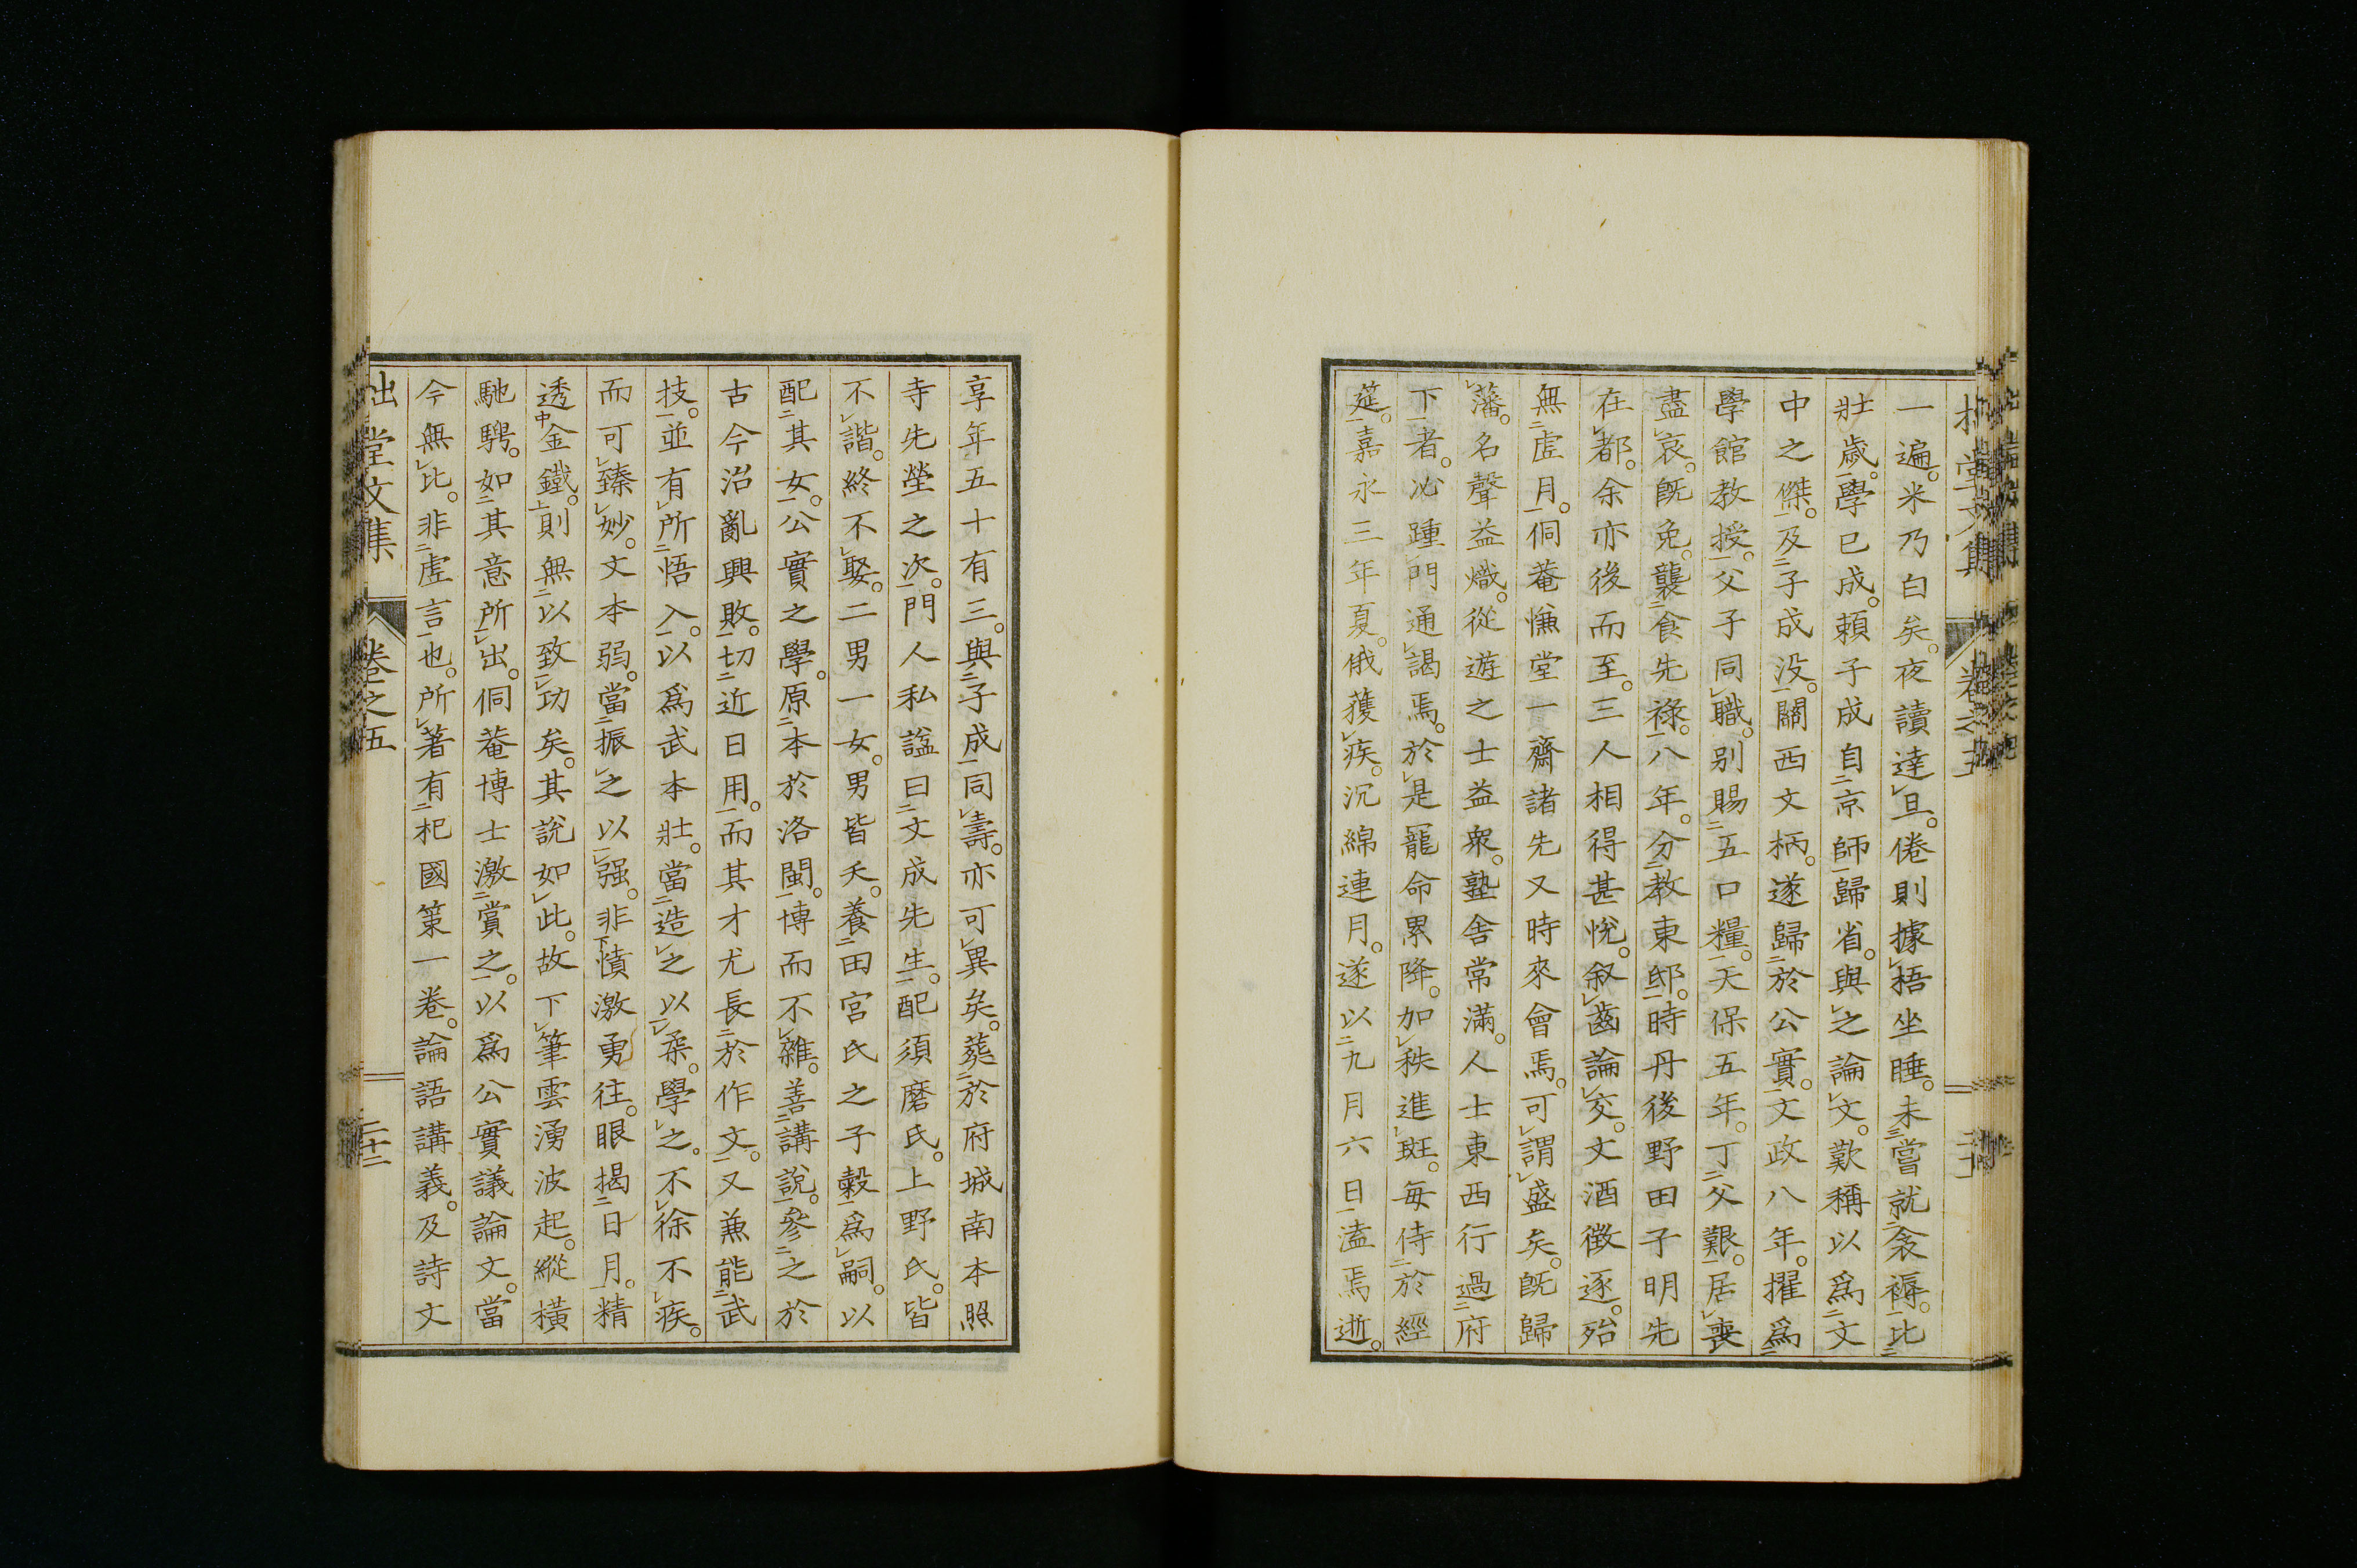 一遍。米乃白矣。夜讀達旦。倦則據梧坐睡。未嘗就衾褥。比
壯歳。學已成。頼子成自京師歸省。與之論文。歎稱以爲文
中之傑。及子成没。關西文柄。遂歸於公實。文政八年。擢爲
學館教授。父子同職。別賜五口糧。天保五年。丁父艱。居喪
盡哀。既免。襲食先祿。八年。分教東邸。時丹後野田子明先
在都。余亦後而至。三人相得甚悅。叙齒論交。文酒徴逐。殆
無虚月。侗菴慊堂一齋諸先又時來會焉。可謂盛矣。既歸
藩。名聲益熾。從遊之士益衆。塾舍常滿。人士東西行過府
下者。必踵門通謁焉。於是寵命累降。加秩進班。毎侍於經
筵。嘉永三年夏。俄獲疾。沉綿連月。遂以九月六日溘焉逝。
享年五十有三。與子成同壽。亦可異矣。葬於府城南本照
寺先塋之次。門人私謚曰文成先生。配須磨氏。上野氏。皆
不諧。終不娶。二男一女。男皆夭。養田宮氏之子穀爲嗣。以
配其女。公實之學。原本於洛閩。博而不雜。善講說。參之於
古今治亂興敗。切近日用。而其才尤長於作文。又兼能武
技。並有所悟入。以爲武本壯。當造之以柔。學之。不徐不疾。
而可臻妙。文本弱。當振之以强。非憤激勇往。眼揭日月。精
透金鐵。則無以致功矣。其說如此。故下筆雲湧波起。縱横
馳騁。如其意所出。侗菴博士激賞之。以爲公實議論文。當
今無比。非虚言也。所著有杞國策一卷。論語講義。及詩文
拙堂文集 卷之五 二十二